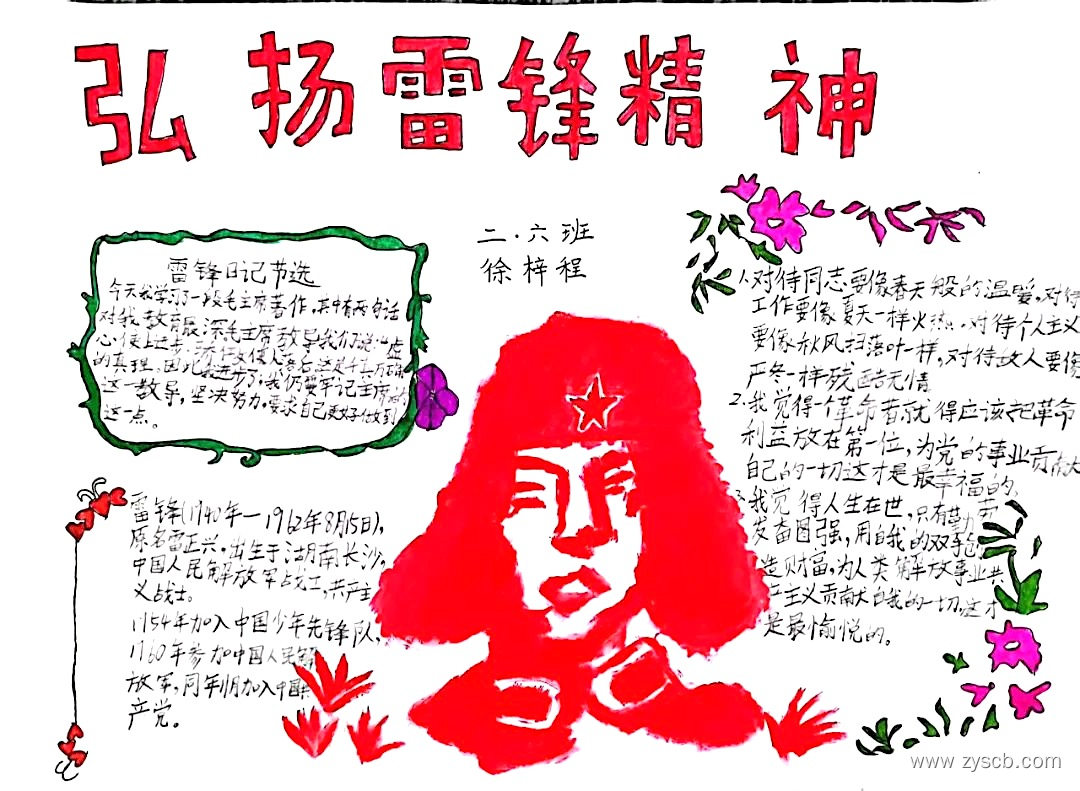 弘扬雷锋精神
二·六班
徐梓程
雷锋日记节选
今天我学习了一段毛主席著作,其中有两句话
对我教育最深毛主席教导我们说:"虚
心使人进步,骄傲使人落后"这是千真万确
的真理。因此我进步了,我仍要牢记主席的
这一教导,坚决努力,要求自己更好做到
这一点。
雷锋(1940年—1962年8月15日),
原名雷正兴,出生于湖南长沙,
中国人民解放军战士,共产主
义战士。
1954年加入中国少年先锋队,
1960年参加中国人民解
放军,同年11月加入中国共
产党。
1.对待同志要像春天般的温暖,对待
工作要像夏天一样火热,对待个人主义
要像秋风扫落叶一样,对待敌人要像
严冬一样残酷无情
2.我觉得一个革命者就得应该把革命
利益放在第一位,为党的事业贡献
自己的一切这才是最幸福的。
3.我觉得人生在世,只有勤劳
发奋图强,用自我的双手
造财富,为人类解放事业共
产主义贡献自我的一切,这才
是最愉悦的。
www.zyscb.com